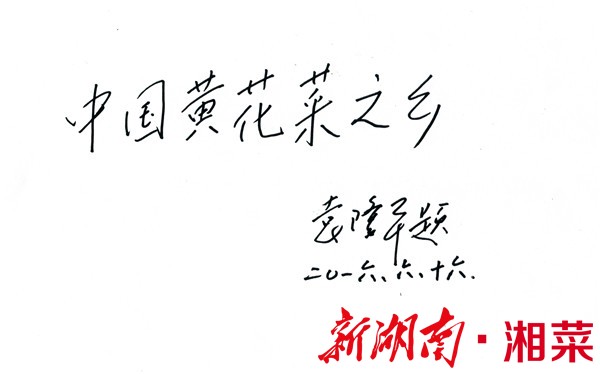 中国黄花菜之乡
袁隆平题
二〇一六、六、十六.
新湖南·湘菜